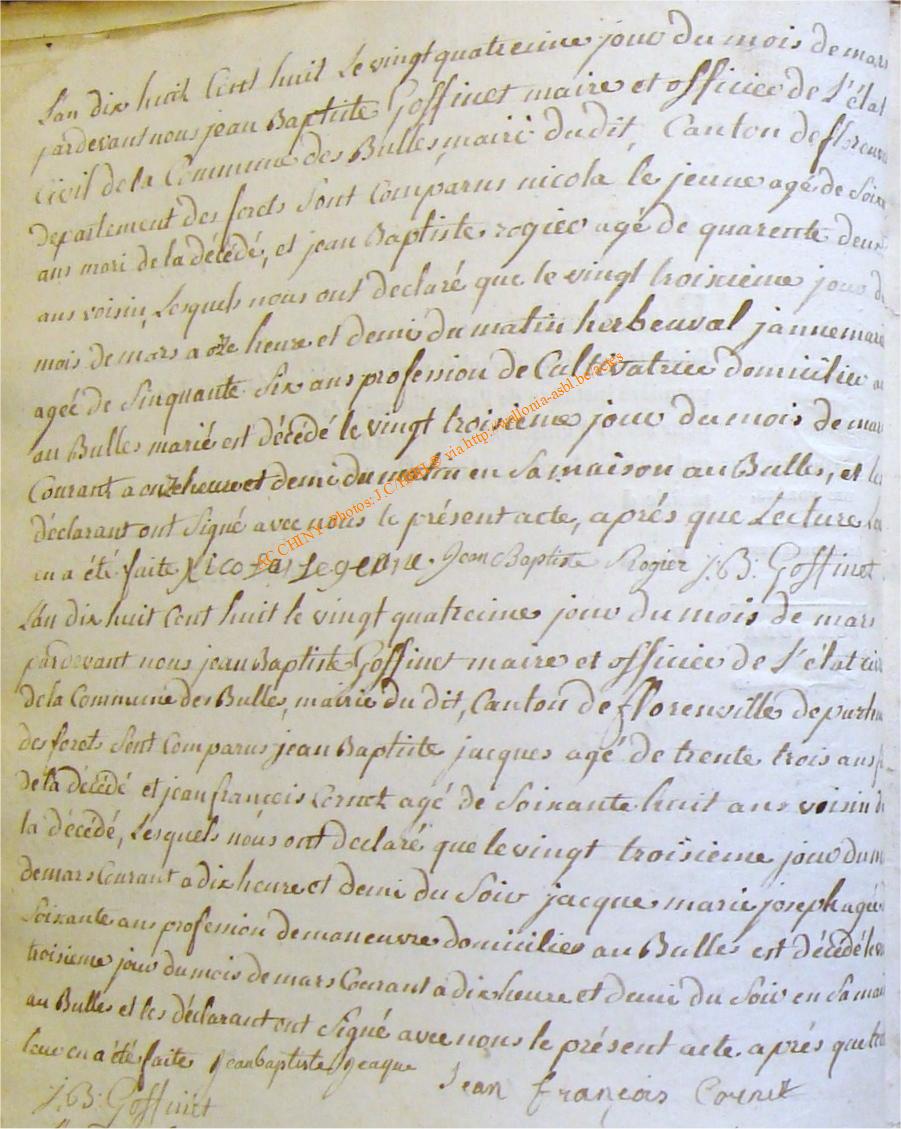 L'an dix huit Cent huit Le vingt quatreime jour du mois de mars
pardevant nous jean Baptiste Goffinet maire et officier de L'état
Civil de la Commune des Bulles, mairie dudit, Canton de florenv
departement des forets Sont Comparus nicola le jeune agé de Soix
ans mari de la décédé, et jean Baptiste rogier agé de quarente deux
ans voisin, Lesquels nous ont declaré que le vingt troisieme jour du
mois de mars a oze heure et demi du matin herbeuval jannemarie
ageé de Sinquante Six ans profession de Cultivatrice domicilieé
au Bulles marié est décédé le vingt troisieme jour du mois de mars
Courant a onze heure et demi du matin en Sa maison au Bulles, et les
déclarant ont Signé avec nous le présent acte, aprés que Lecture
en a été faite Nicolas Le geune. Jean Baptiste Rogier J:B: Goffinet
L'an dix huit Cent huit le vingt quatreime jour du mois de mars
pardevant nous jean Baptiste Goffinet maire et officier de L'état civ
de la Commune des Bulles, mairie du dit, Canton de florenville departem
des forets Sont Comparus jean Baptiste jacques agé de trente trois ans
de la décédé et jean françois Cornet agé de Soixante huit ans voisin de
la décédé, Lesquels nous ont declaré que le vingt troisieme jour du m
de mars Courant a dix heure et demi du Soir jacque marie joseph agée
Soixante ans profession de maneuvre domicilieé au Bulles est décédé le v
troisieme jour du mois de mars Courant a dix heure et demi du Soir en Sa mais
au Bulles et les déclarant ont Signé avec nous le présent acte. aprés que
leur en a été faite Jean baptiste Jeaque Jean François Cornet
J:B: Goffinet
AC CHINY - Photos: J.C. via http://wallonia-asbl.be/actes